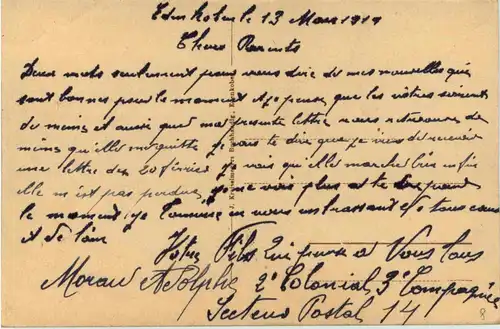 Edenkoben le 13 Mars 1919
Chers Parents
Deux mots seulement pour vous dire de mes nouvelles qui
sont bonnes pour le moment et je pense que les votres soient
de meme et aussi que ma presente lettre vous retrouve de
meme qu'elle me quitte je vais te dire que je viens de recevoir
une lettre des 20 février je vois qu'elle marche bien enfin
elle n'est pas perdue, je ne vois plus a te dire pour
le moment je termine en vous embrassant tous
et de loin
Votre Fils qui pense a Vous tous
Morau Adolphe 2e Colonial 3e Compagnie
Secteur Postal 14